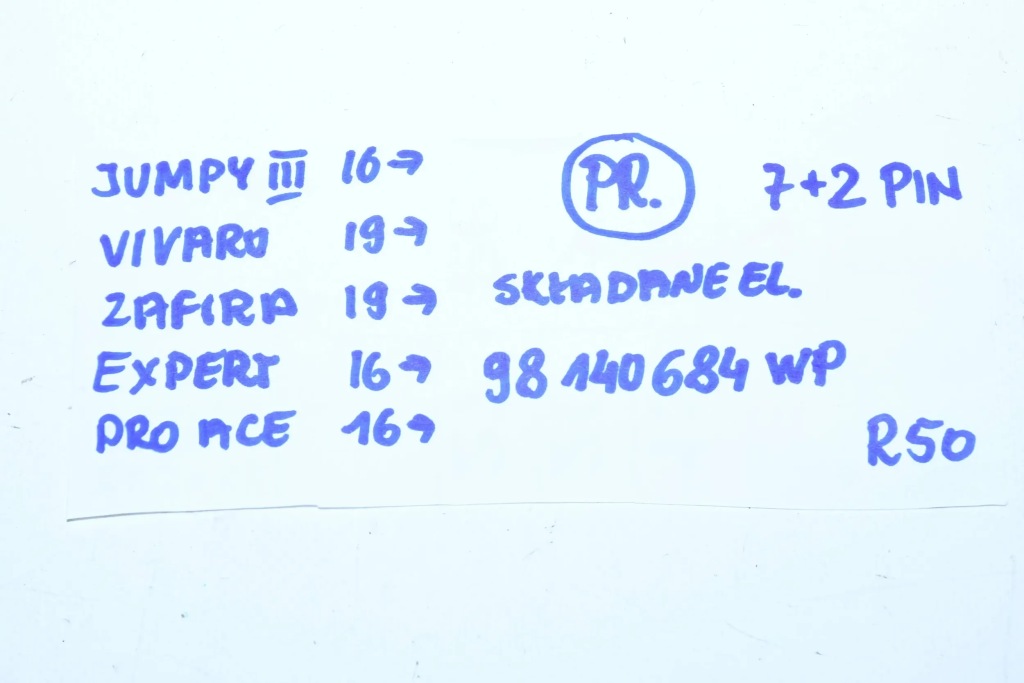 JUMPY III 16→ PR. 7+2 PIN
VIVARO 19→
ZAFIRA 19→ SKŁADANE EL.
EXPERT 16→ 98140684WP
PRO ACE 16→
R50